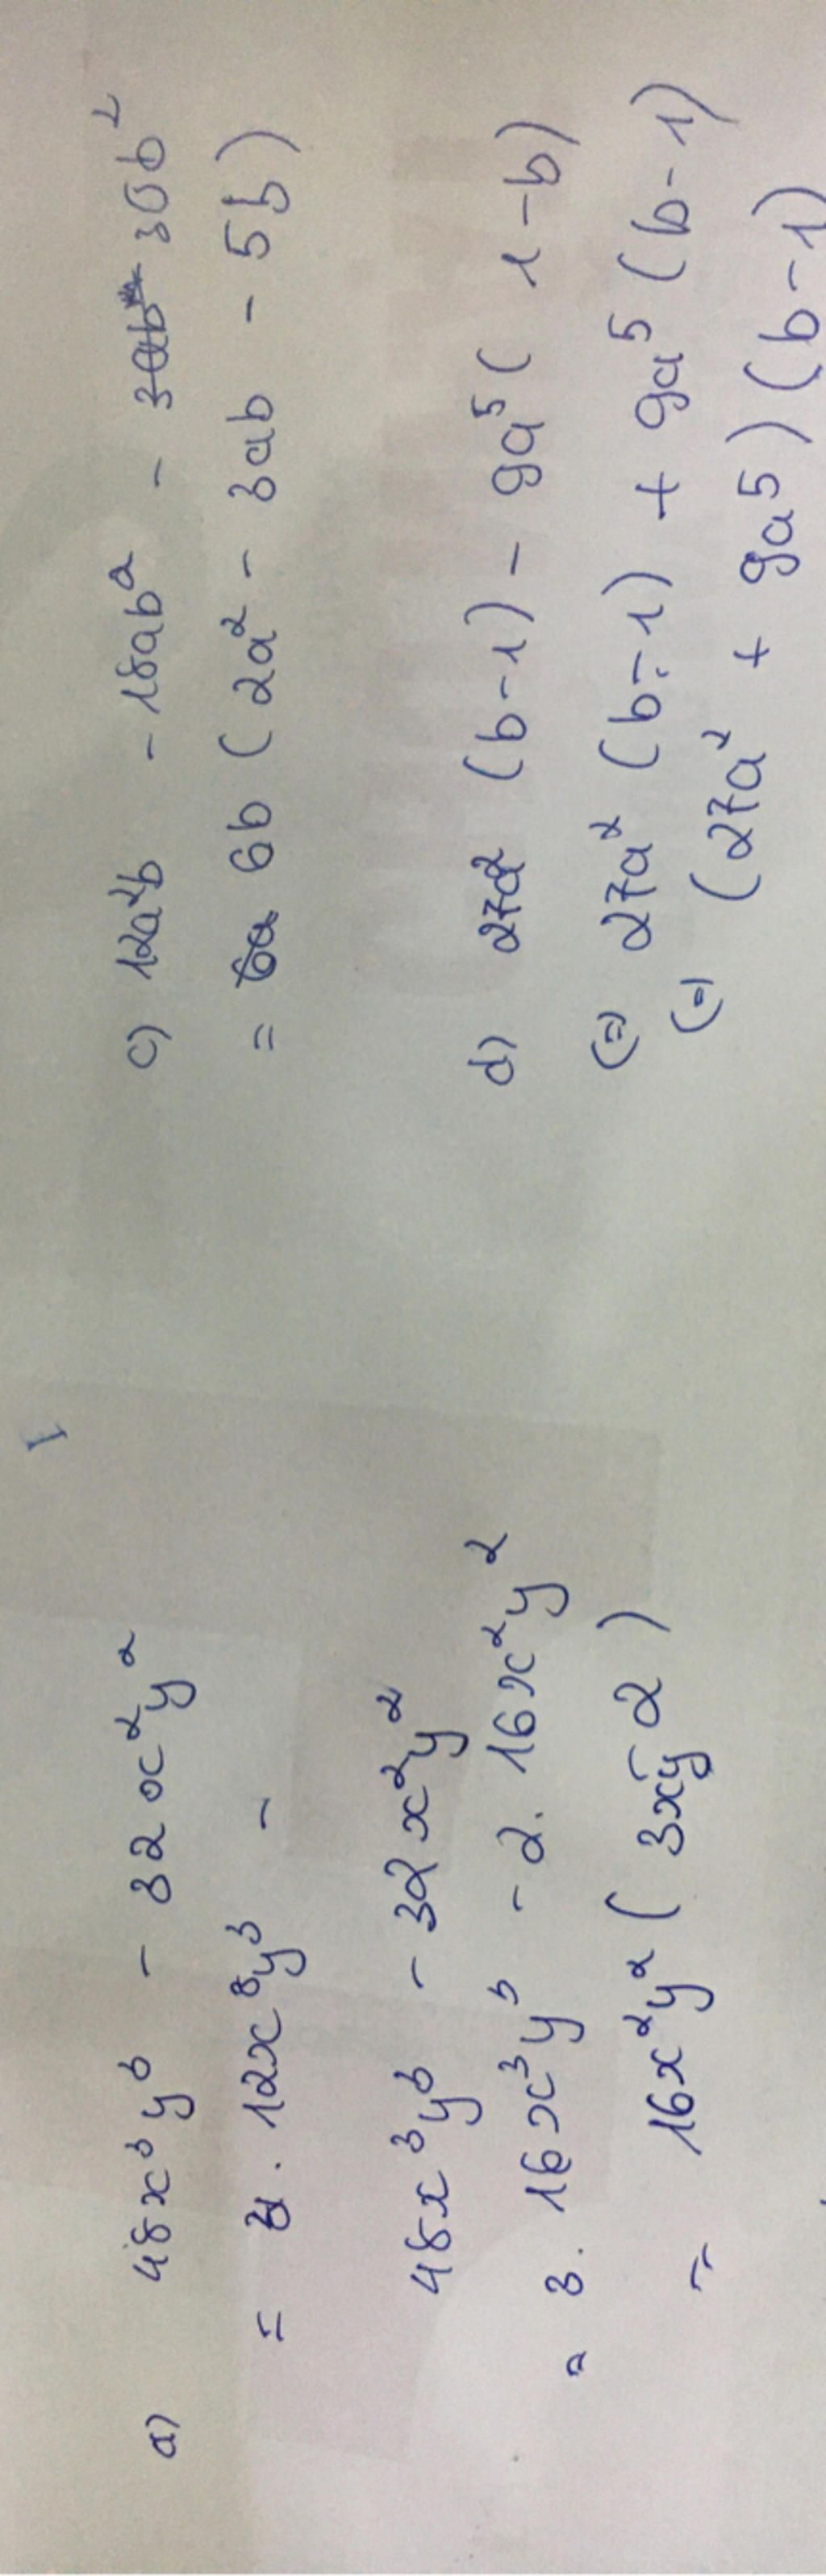 a) 48x³y³ - 32x²y²
= 4. 12x³y³ -
48x³y³ - 32x²y²
= 3. 16x³y³ - 2. 16x²y²
= 16x²y² ( 3xy - 2 )
c) 12a²b - 18ab² - 3ab² 30b²
= 6a 6b ( 2a² - 3ab - 5b )
d) 27a² (b-1) - 9a⁵ ( 1-b)
(=) 27a² (b-1) + 9a⁵ (b-1)
(=) (27a² + 9a⁵) (b-1)